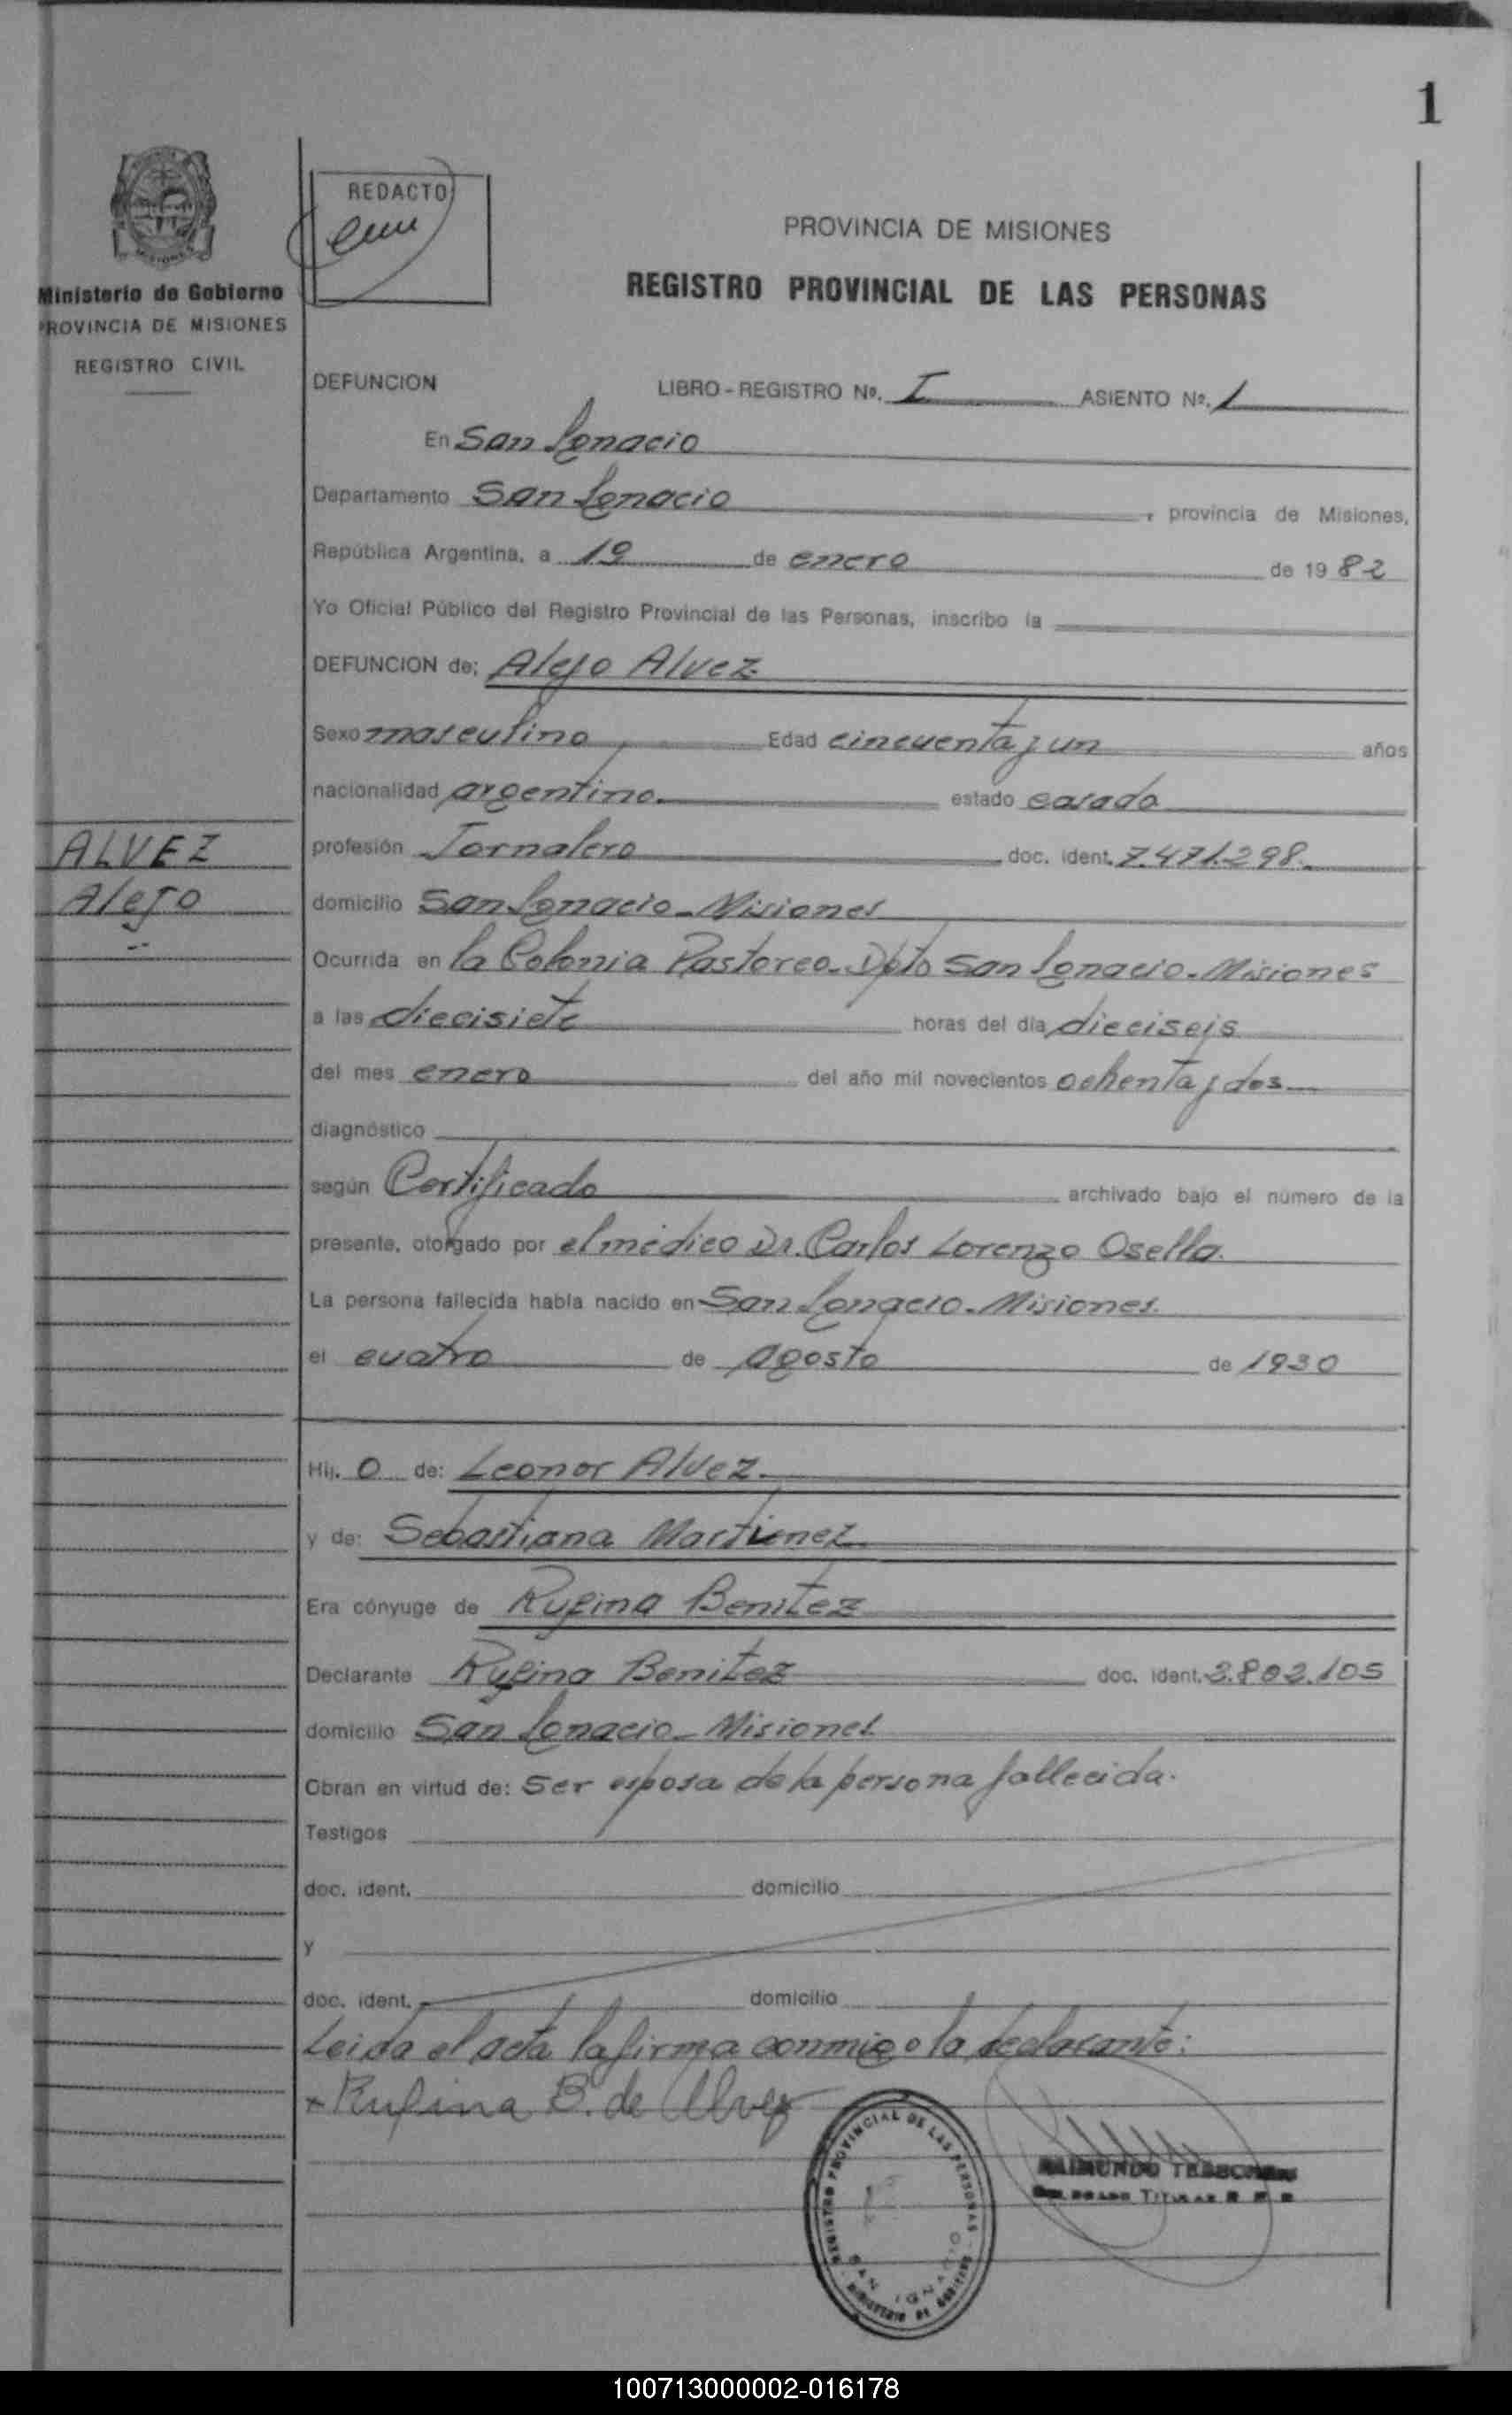 1
REDACTO
Ministerio de Gobierno
PROVINCIA DE MISIONES
REGISTRO CIVIL
PROVINCIA DE MISIONES
REGISTRO PROVINCIAL DE LAS PERSONAS
DEFUNCION LIBRO - REGISTRO Nº. I ASIENTO Nº. 1
En San Ignacio
Departamento San Ignacio, provincia de Misiones,
República Argentina, a 19 de enero de 1982
Yo Oficial Público del Registro Provincial de las Personas, inscribo la
DEFUNCION de: Alejo Alvez
Sexo masculino Edad cincuenta y un años
nacionalidad argentino. estado casado
ALVEZ
Alejo
profesión Jornalero doc. ident. 7.471.298.
domicilio San Ignacio - Misiones
Ocurrida en la Colonia Pastoreo - Dpto San Ignacio - Misiones
a las diecisiete horas del día dieciseis
del mes enero del año mil novecientos ochenta y dos
diagnóstico
según Certificado archivado bajo el número de la
presente, otorgado por el médico Dr. Carlos Lorenzo Osella.
La persona fallecida había nacido en San Ignacio - Misiones.
el cuatro de agosto de 1930
Hij. o de: Leonor Alvez.
y de: Sebastiana Martinez
Era cónyuge de Rufina Benitez
Declarante Rufina Benitez doc. ident. 2.802.105
domicilio San Ignacio - Misiones
Obran en virtud de: Ser esposa de la persona fallecida.
Testigos
doc. ident. domicilio
y
doc. ident. domicilio
Leida el acta la firma conmigo la declarante:
Rufina B. de Alvez
REGISTRO PROVINCIAL DE LAS PERSONAS
SAN IGNACIO
MINISTERIO DE GOBIERNO
RAIMUNDO
TITULAR
100713000002-016178